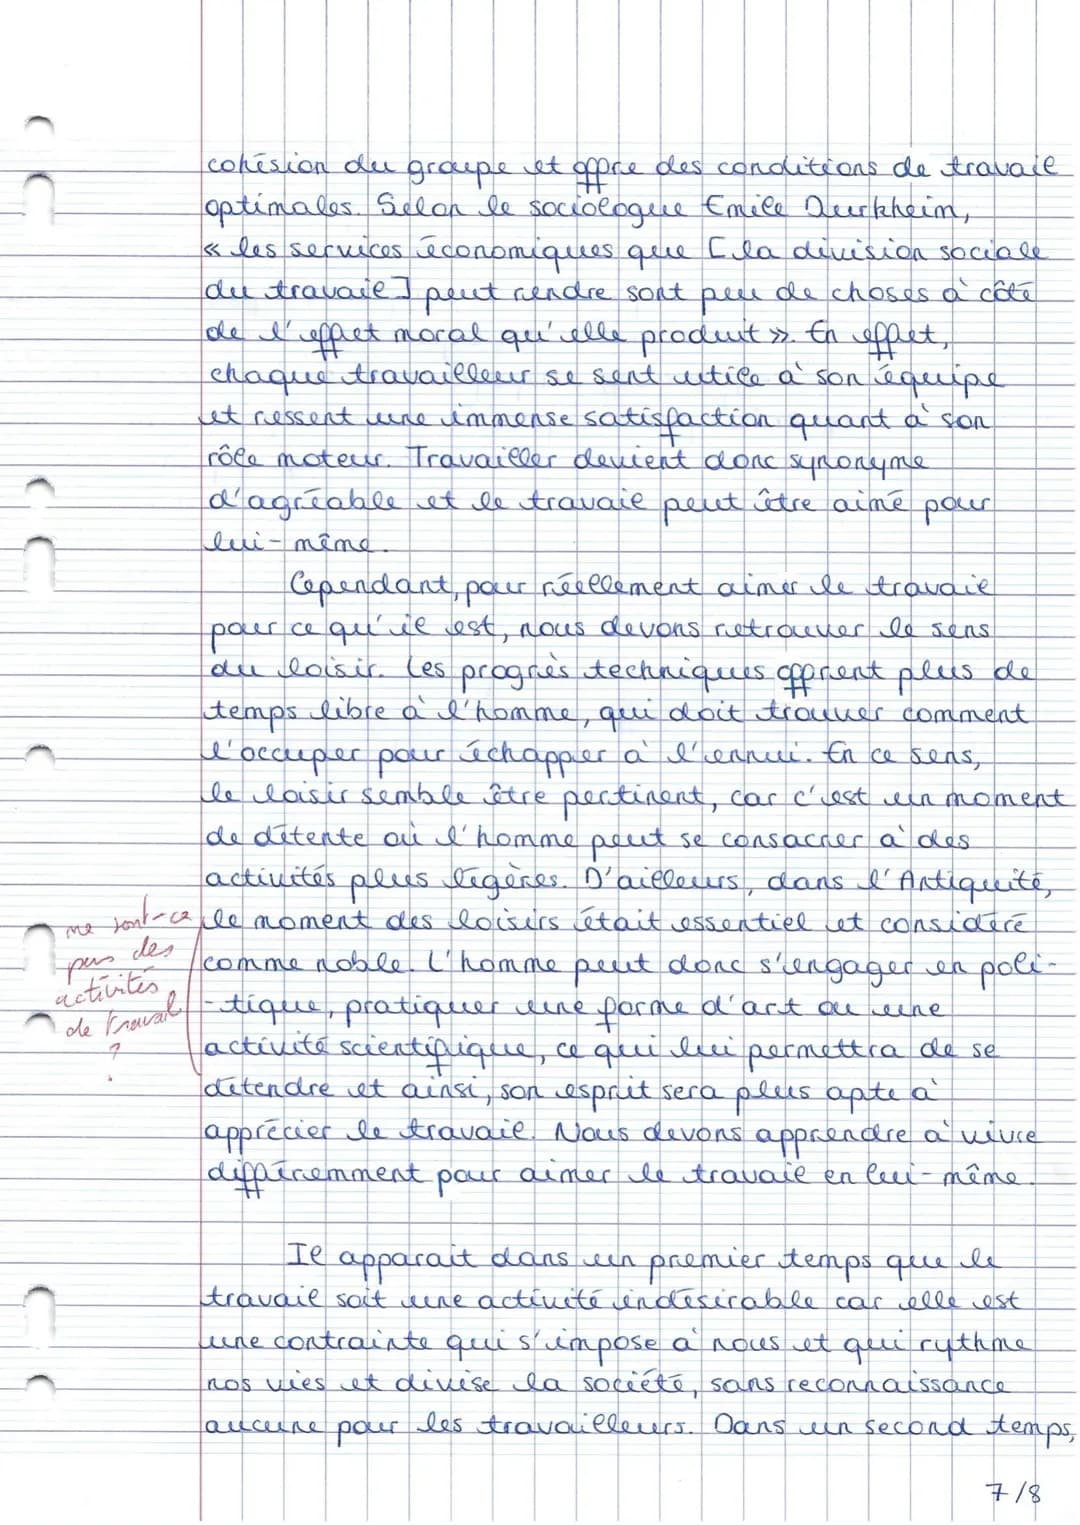 cohésion du groupe et offre des conditions de travail
optimales. Selon le sociologue Emile Durkheim,
« les services économiques que [la division sociale
du travail] peut rendre sont peu de choses à côté
de l'effet moral qu'elle produit ». En effet,
chaque travailleur se sent utile à son équipe
et ressent une immense satisfaction quant à son
rôle moteur. Travailler devient donc synonyme
d'agréable et le travail peut être aimé pour
lui-même.
Cependant, pour réellement aimer le travail
pour ce qu'il est, nous devons retrouver le sens
du loisir. Les progrès techniques offrent plus de
temps libre à l'homme, qui doit trouver comment
l'occuper pour échapper à l'ennui. En ce sens,
le loisir semble être pertinent, car c'est un moment
de détente où l'homme peut se consacrer à des
activités plus légères. D'ailleurs, dans l'Antiquité,
le moment des loisirs était essentiel et considéré
comme noble. L'homme peut donc s'engager en poli-
-tique, pratiquer une forme d'art ou une
activité scientifique, ce qui lui permettra de se
détendre et ainsi, son esprit sera plus apte à
apprécier le travail. Nous devons apprendre à vivre
différemment pour aimer le travail en lui-même.
ne sont-ce
pas des
activités
de travail
?
Il apparait dans un premier temps que le
travail soit une activité indésirable car elle est
une contrainte qui s'impose à nous et qui rythme
nos vies et divise la société, sans reconnaissance
aucune pour les travailleurs. Dans un second temps,
7/8